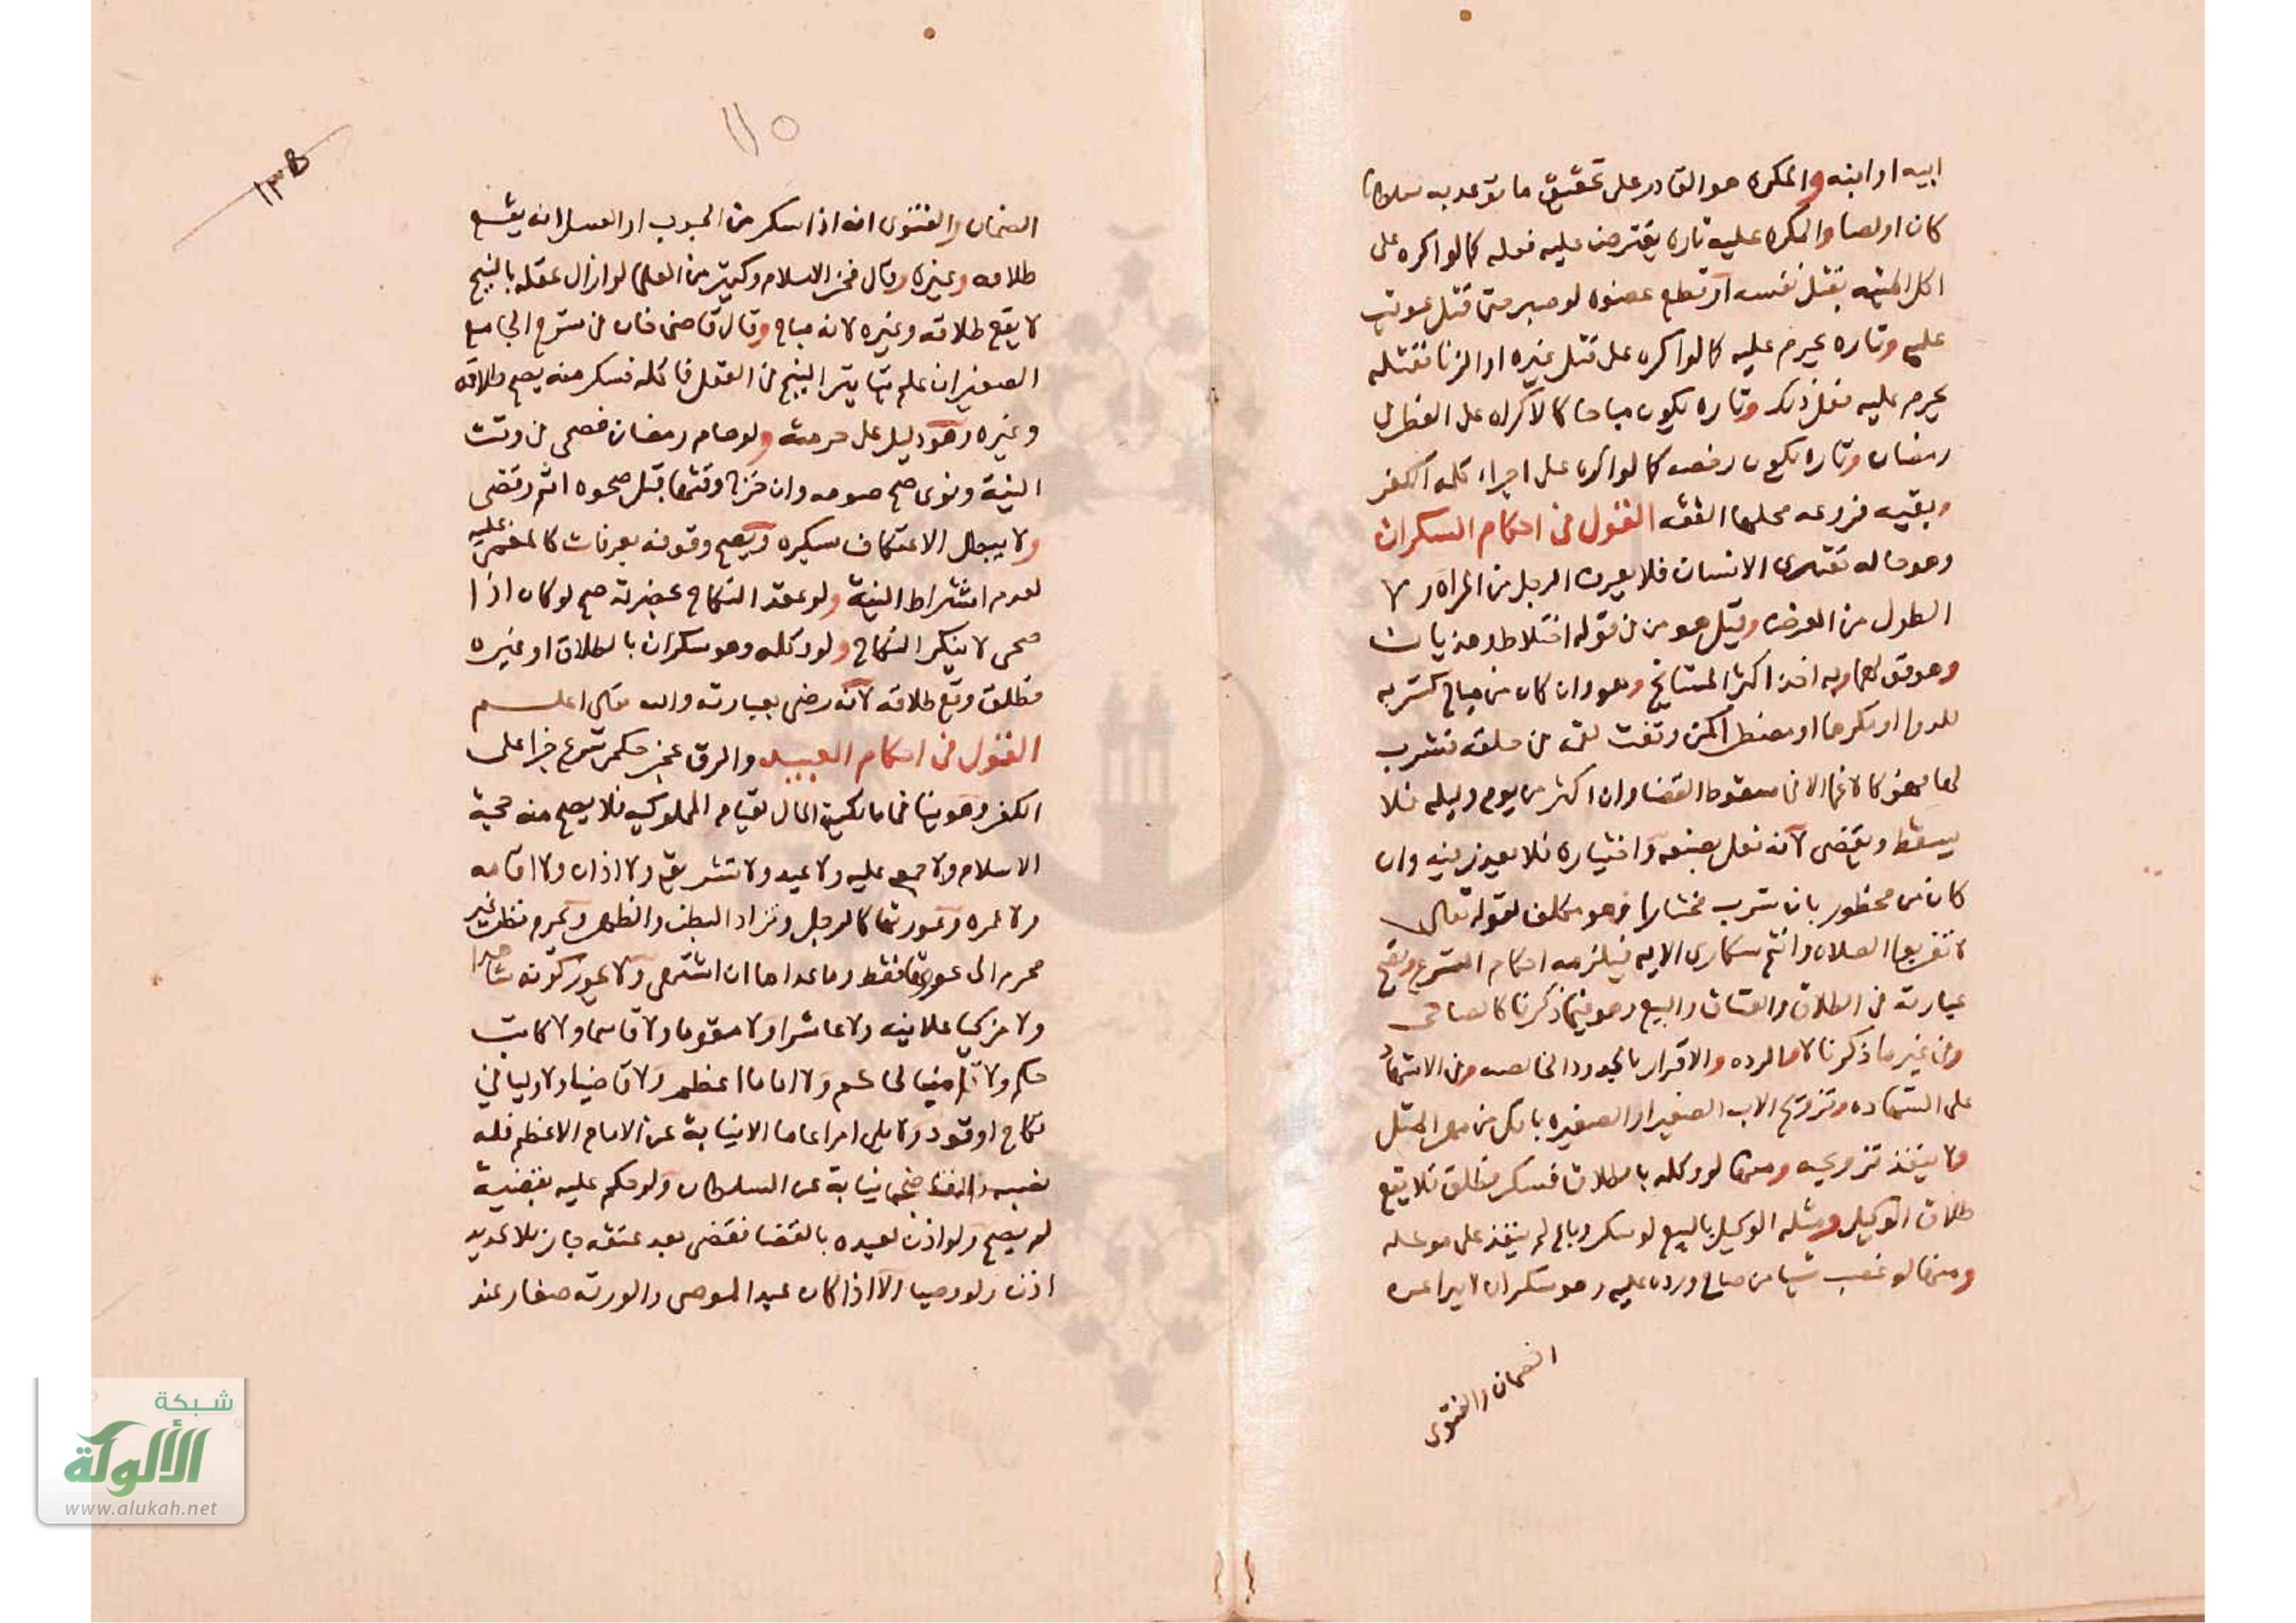 ابيه او ابنه والمكره هو القادر على تحقيق ما توعد به سلطانا
كان او لصا والمكره عليه تارة يفترض عليه فعله كما لو اكره على
اكل الميتة بقتل نفسه او قطع عضوه لو صبر حتى قتل عوقب
عليه وتاره يحرم عليه كما لو اكره على قتل غيره او الزنا فقتله
يحرم عليه فعل ذلك وتاره يكون مباحا كالاكراه على الفطر في
رمضان وتاره يكون رخصه كما لو اكره على اجراء كلمه الكفر
وبقيه فروعه محلها الفقه القول في احكام السكران
وهو حاله تعتري الانسان فلا يعرف الرجل من المراه ولا
الطول من العرض وقيل هو من في قوله اختلاط وهذيان
وهو قولهما وبه اخذ اكثر المشايخ وهو وان كان من مباح كشربه
للدوا او مكرها او مضطرا كمن وقفت لقمه في حلقه فشرب
لها فهو كالاغما الا في سقوط القضا وان اكثر من يوم وليله فلا
يسقط ويقضي لانه فعل بصنعه واختياره فلا يعيد زينيه وان
كان من محظور بان شرب مختارا فهو مكلف لقوله تعالى
لا تقربوا الصلاه وانتم سكارى الايه فيلزمه احكام الشرع وتصح
عبارته في الطلاق والعتاق والبيع وهو فيما ذكرنا كالصاحي
وفي غير ما ذكرنا لا الرده والاقرار بالحدود الخالصه وفي الاشهاد
على الشهاده وتزويج الاب الصغير او الصغيره باكل من مهر المثل
ولا ينفذ تزويجه ومنها لو وكله بالطلاق فسكر فطلق فلا يقع
طلاق الوكيل ومثله الوكيل بالبيع لو سكر وباع لم ينفذ على موكله
ومنها لو غصب شيا من صاح ورده عليه وهو سكران لا يبرا من
الضمان والفتوى
١١٥
الضمان والفتوى انه اذا سكر من الحبوب او العسل انه يقع
طلاقه وغيره وقال فخر الاسلام وكثير من العلما لو ازال عقله بالبنج
لا يقع طلاقه وغيره لانه مباح وقال قاضي خان في شرح الجامع
الصغير ان علم بتاثير البنج في العقل فاكله فسكر منه يصح طلاقه
وغيره وهو دليل على حرمته ولو صام رمضان فصحى في وقت
النية ونوى صح صومه وان خرج وقتها قبل صحوه اثم وقضى
ولا يبطل الاعتكاف بسكره ويصح وقوفه بعرفات كالمغمى عليه
لعدم اشتراط النية ولو عقد النكاح بحضرته صح لو كان اذا
صحى لا ينكر النكاح ولو وكله وهو سكران بالطلاق او غيره
فطلق وقع طلاقه لانه رضي بعبارته والله تعالى اعلم
القول في احكام العبيد والرق عجز حكمي شرع جزا على
الكفر وهو ينافي مالكية المال لقيام المملوكيه فلا يصح منه حجة
الاسلام ولا جمعه عليه ولا عيد ولا تشريق ولا اذان ولا اقامه
ولا عمره وعورتها كالرجل وتزاد البطن والظهر ويحرم نظر غير
محرم الى عورتها فقط وما عداها ان اشتهى ولا يجوز كونه شاهدا
ولا مزكيا علانيه ولا عاشرا ولا مقوما ولا قاسما ولا كاتب
حكم ولا امينا لحاكم ولا اماما اعظم ولا قاضيا ولا وليا في
نكاح او قود ولا يلي امرا عاما الا نيابة عن الامام الاعظم فله
نصب القاضي نيابة عن السلطان ولو حكم عليه بقضية
لم يصح ولو اذن لعبده بالقضا فقضى بعد عتقه جاز بلا تجديد
اذن ولو وصيا الا اذا كان عبد الموصى والورثه صغار عند
شبكة
الألوكة
www.alukah.net